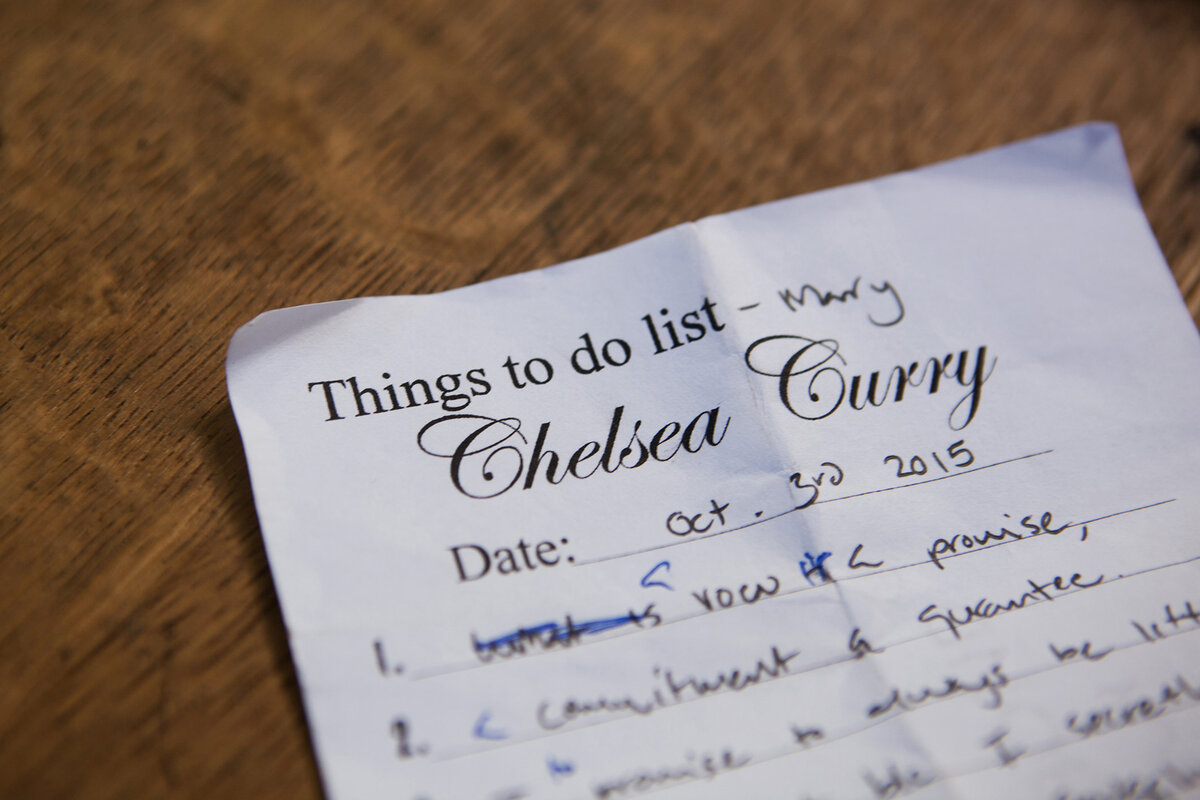 Things to do list - Marry
Chelsea Curry
Date: Oct. 3rd 2015
1. a vow is a promise,
2. a commitment a gurantee.
I promise to always be
I secretl